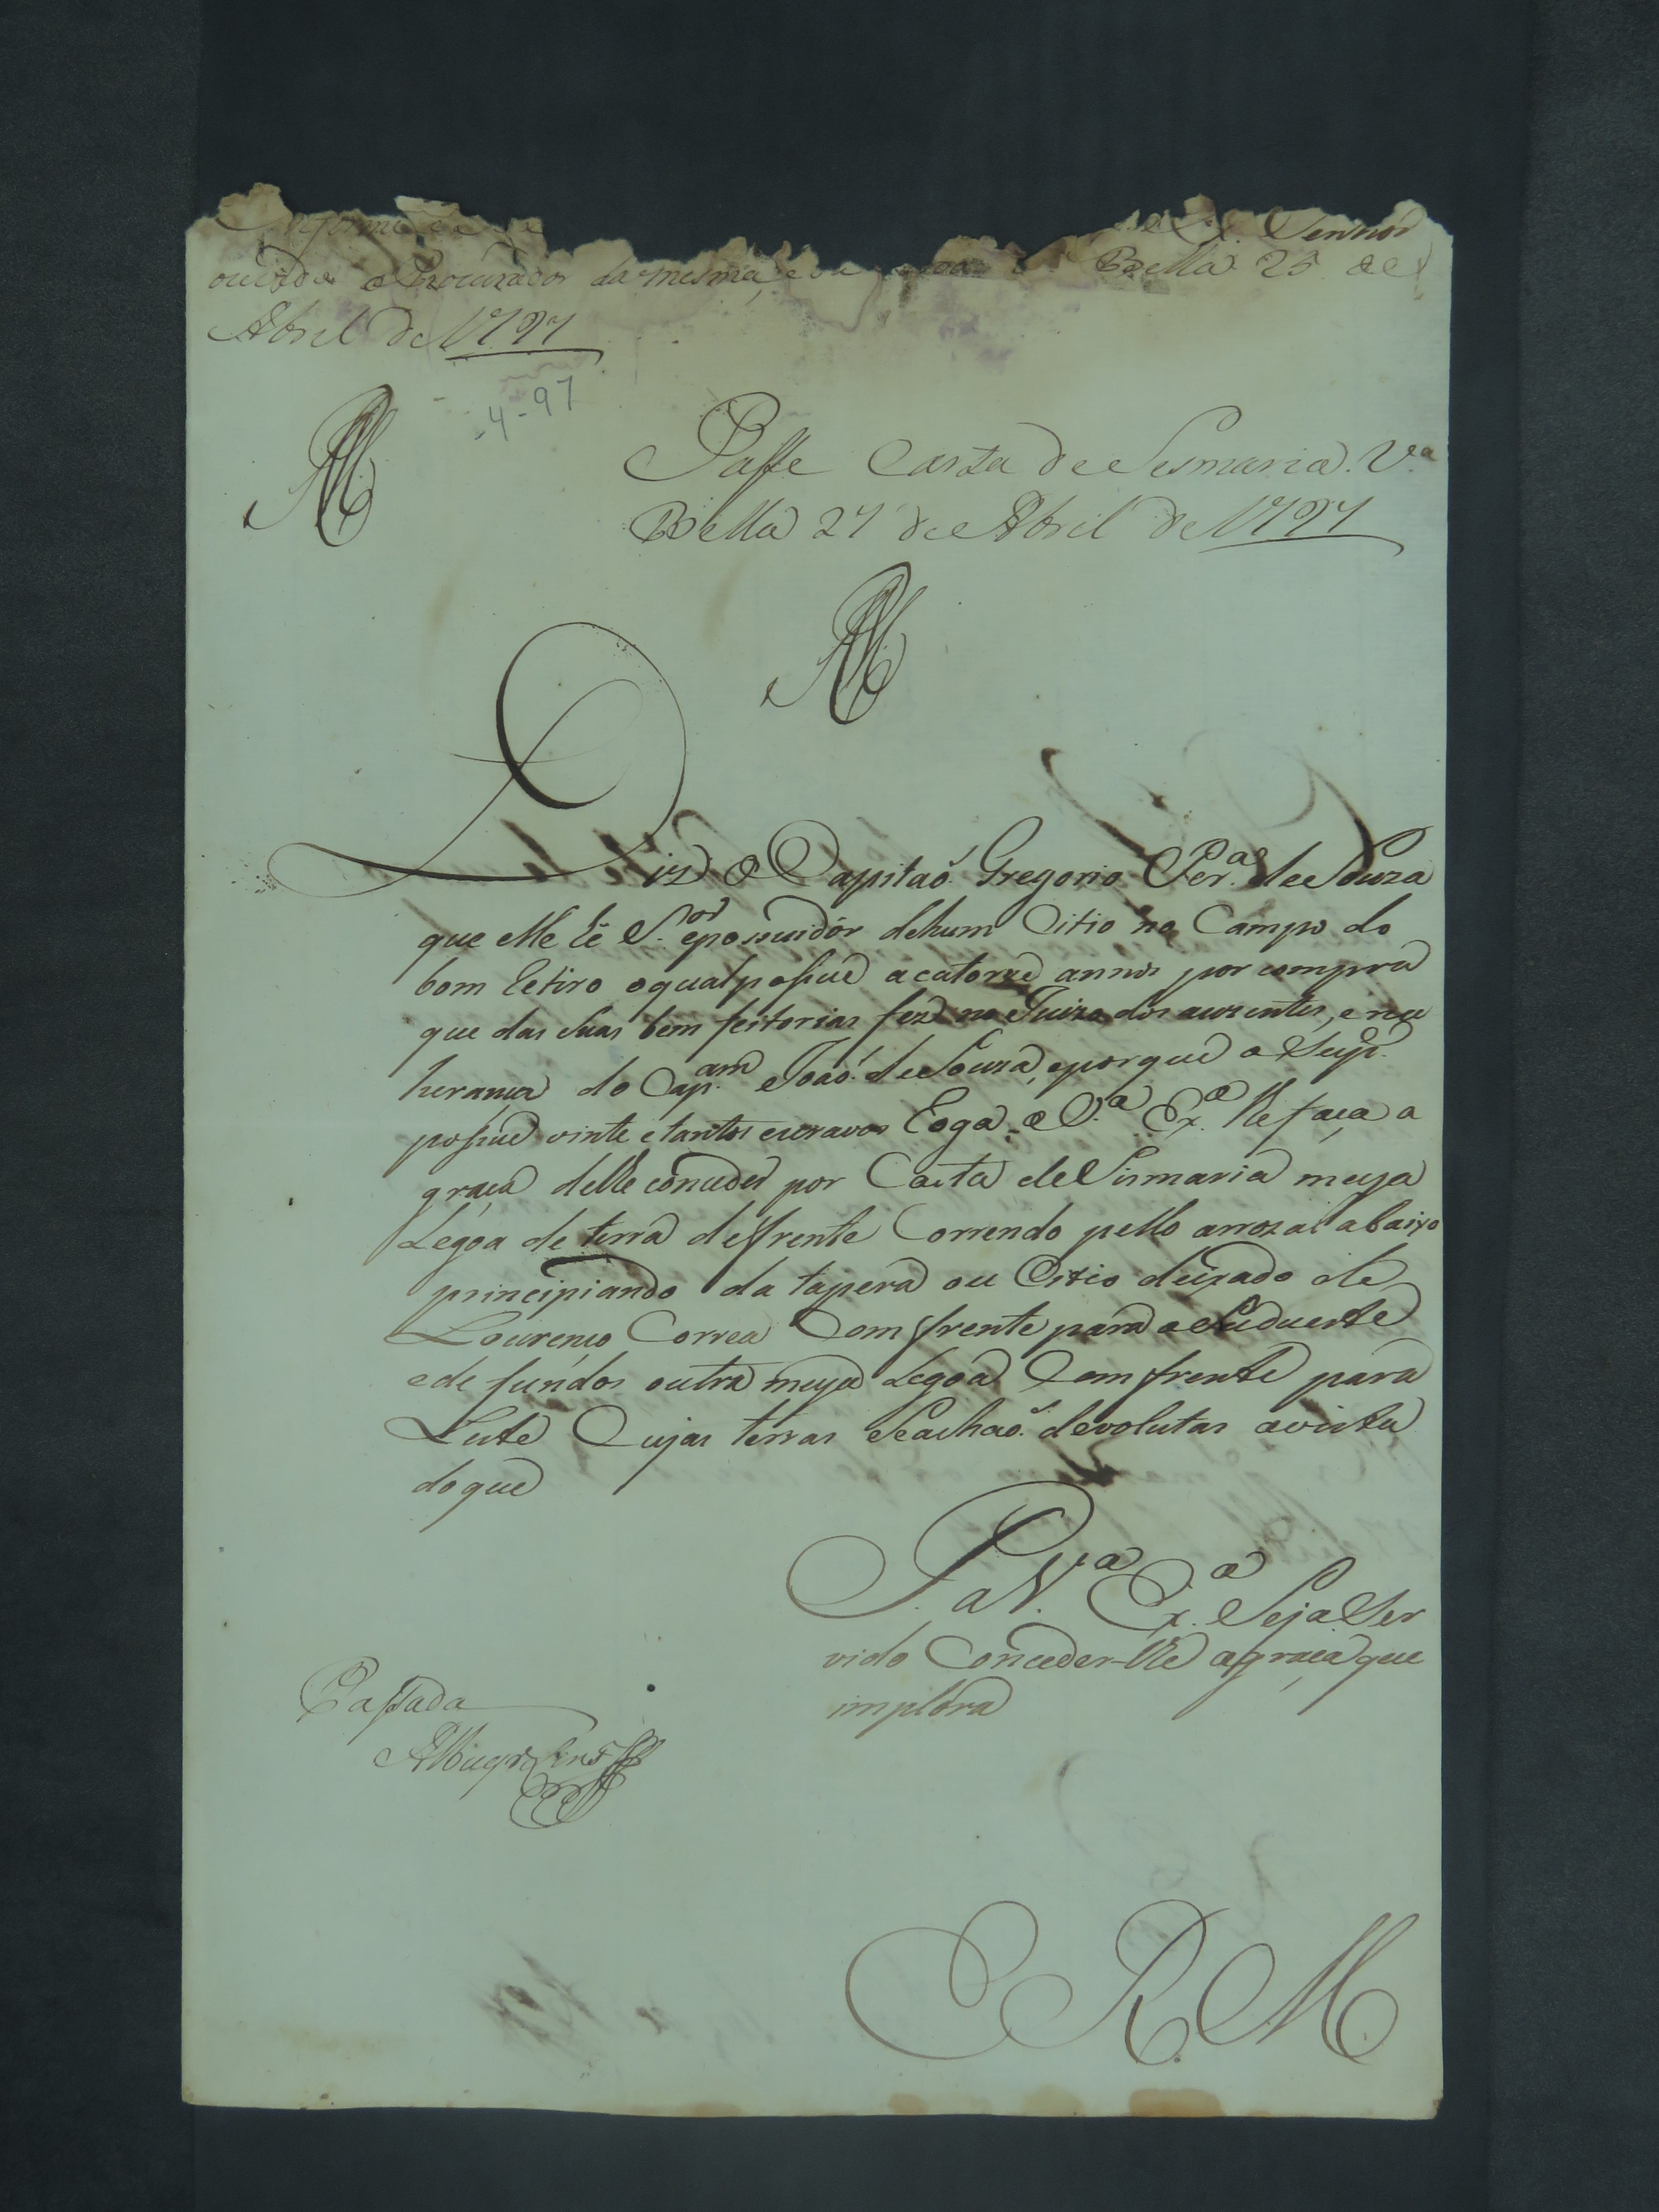 Informe
Senhor
ouvindo o Procurador da mesma, Bella 25 de
Abril de 1797
4-97
Passe Carta de Sesmaria. V.ª
Bella 27 de Abril de 1797
Diz o Capitaõ Gregorio Per.ª de Souza
que elle hé S.or e possuidor de hum Citio no Campo do
bom Retiro o qual possue a catorze annos por compra
que das Suas bem feitorias fez no Juizo dos auzentes, e na
herança do Cap.am Joaõ de Souza, e porque o Sup.e
possue vinte e tantos escravos Roga a V.ª Ex.ª lhe faça a
graça de lhe conceder por Carta de Sismaria meya
Legoa de terra de frente Correndo pello arrozal abaixo
principiando da tapera ou Citio deixado de
Lourenço Correa Com frente para o Sudueste
e de fundos outra meya Legoa Com frente para
Leste Cujas terras Se achaõ devolutas a vista
do que
P. a V.ª Ex.ª Seja Ser
vido Conceder-lhe a graça que
implora
Passada
E R. M